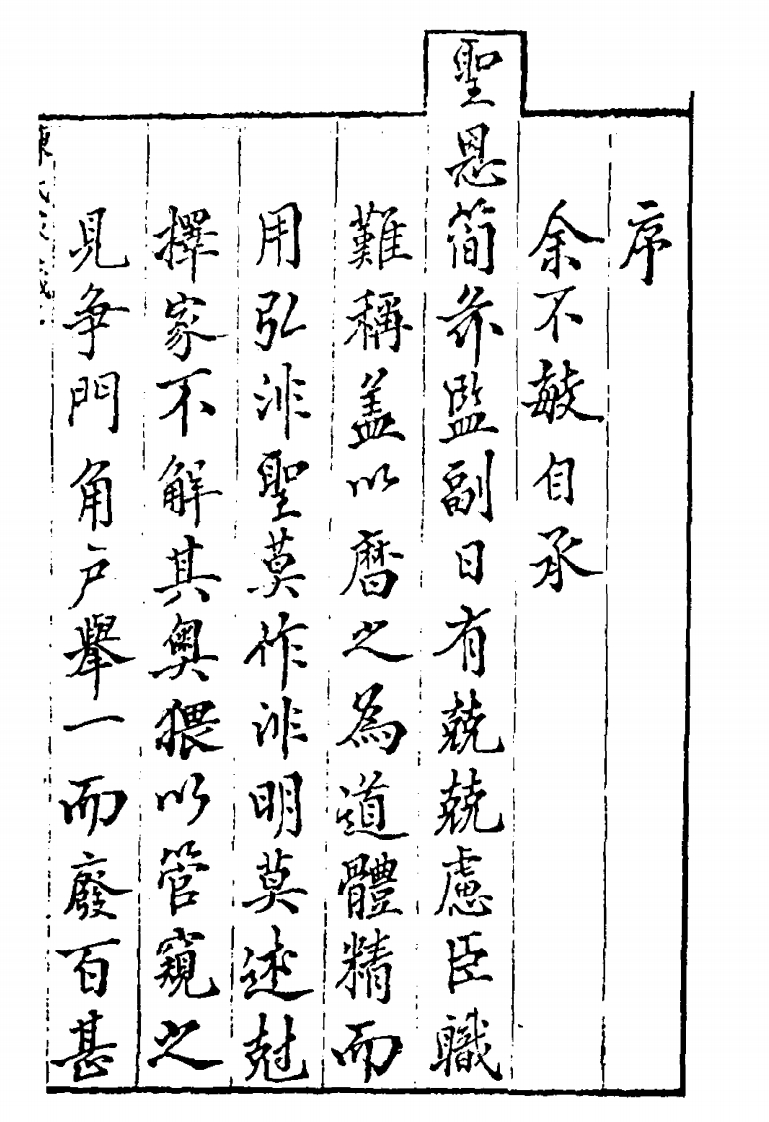 序
余不敏自承
聖恩簡界監副日有兢兢慮臣職
難稱盖以曆之為道體精而
用弘非聖莫作非明莫述尅
擇家不解其奥猥以管窺之
見争門角户舉一而廢百甚